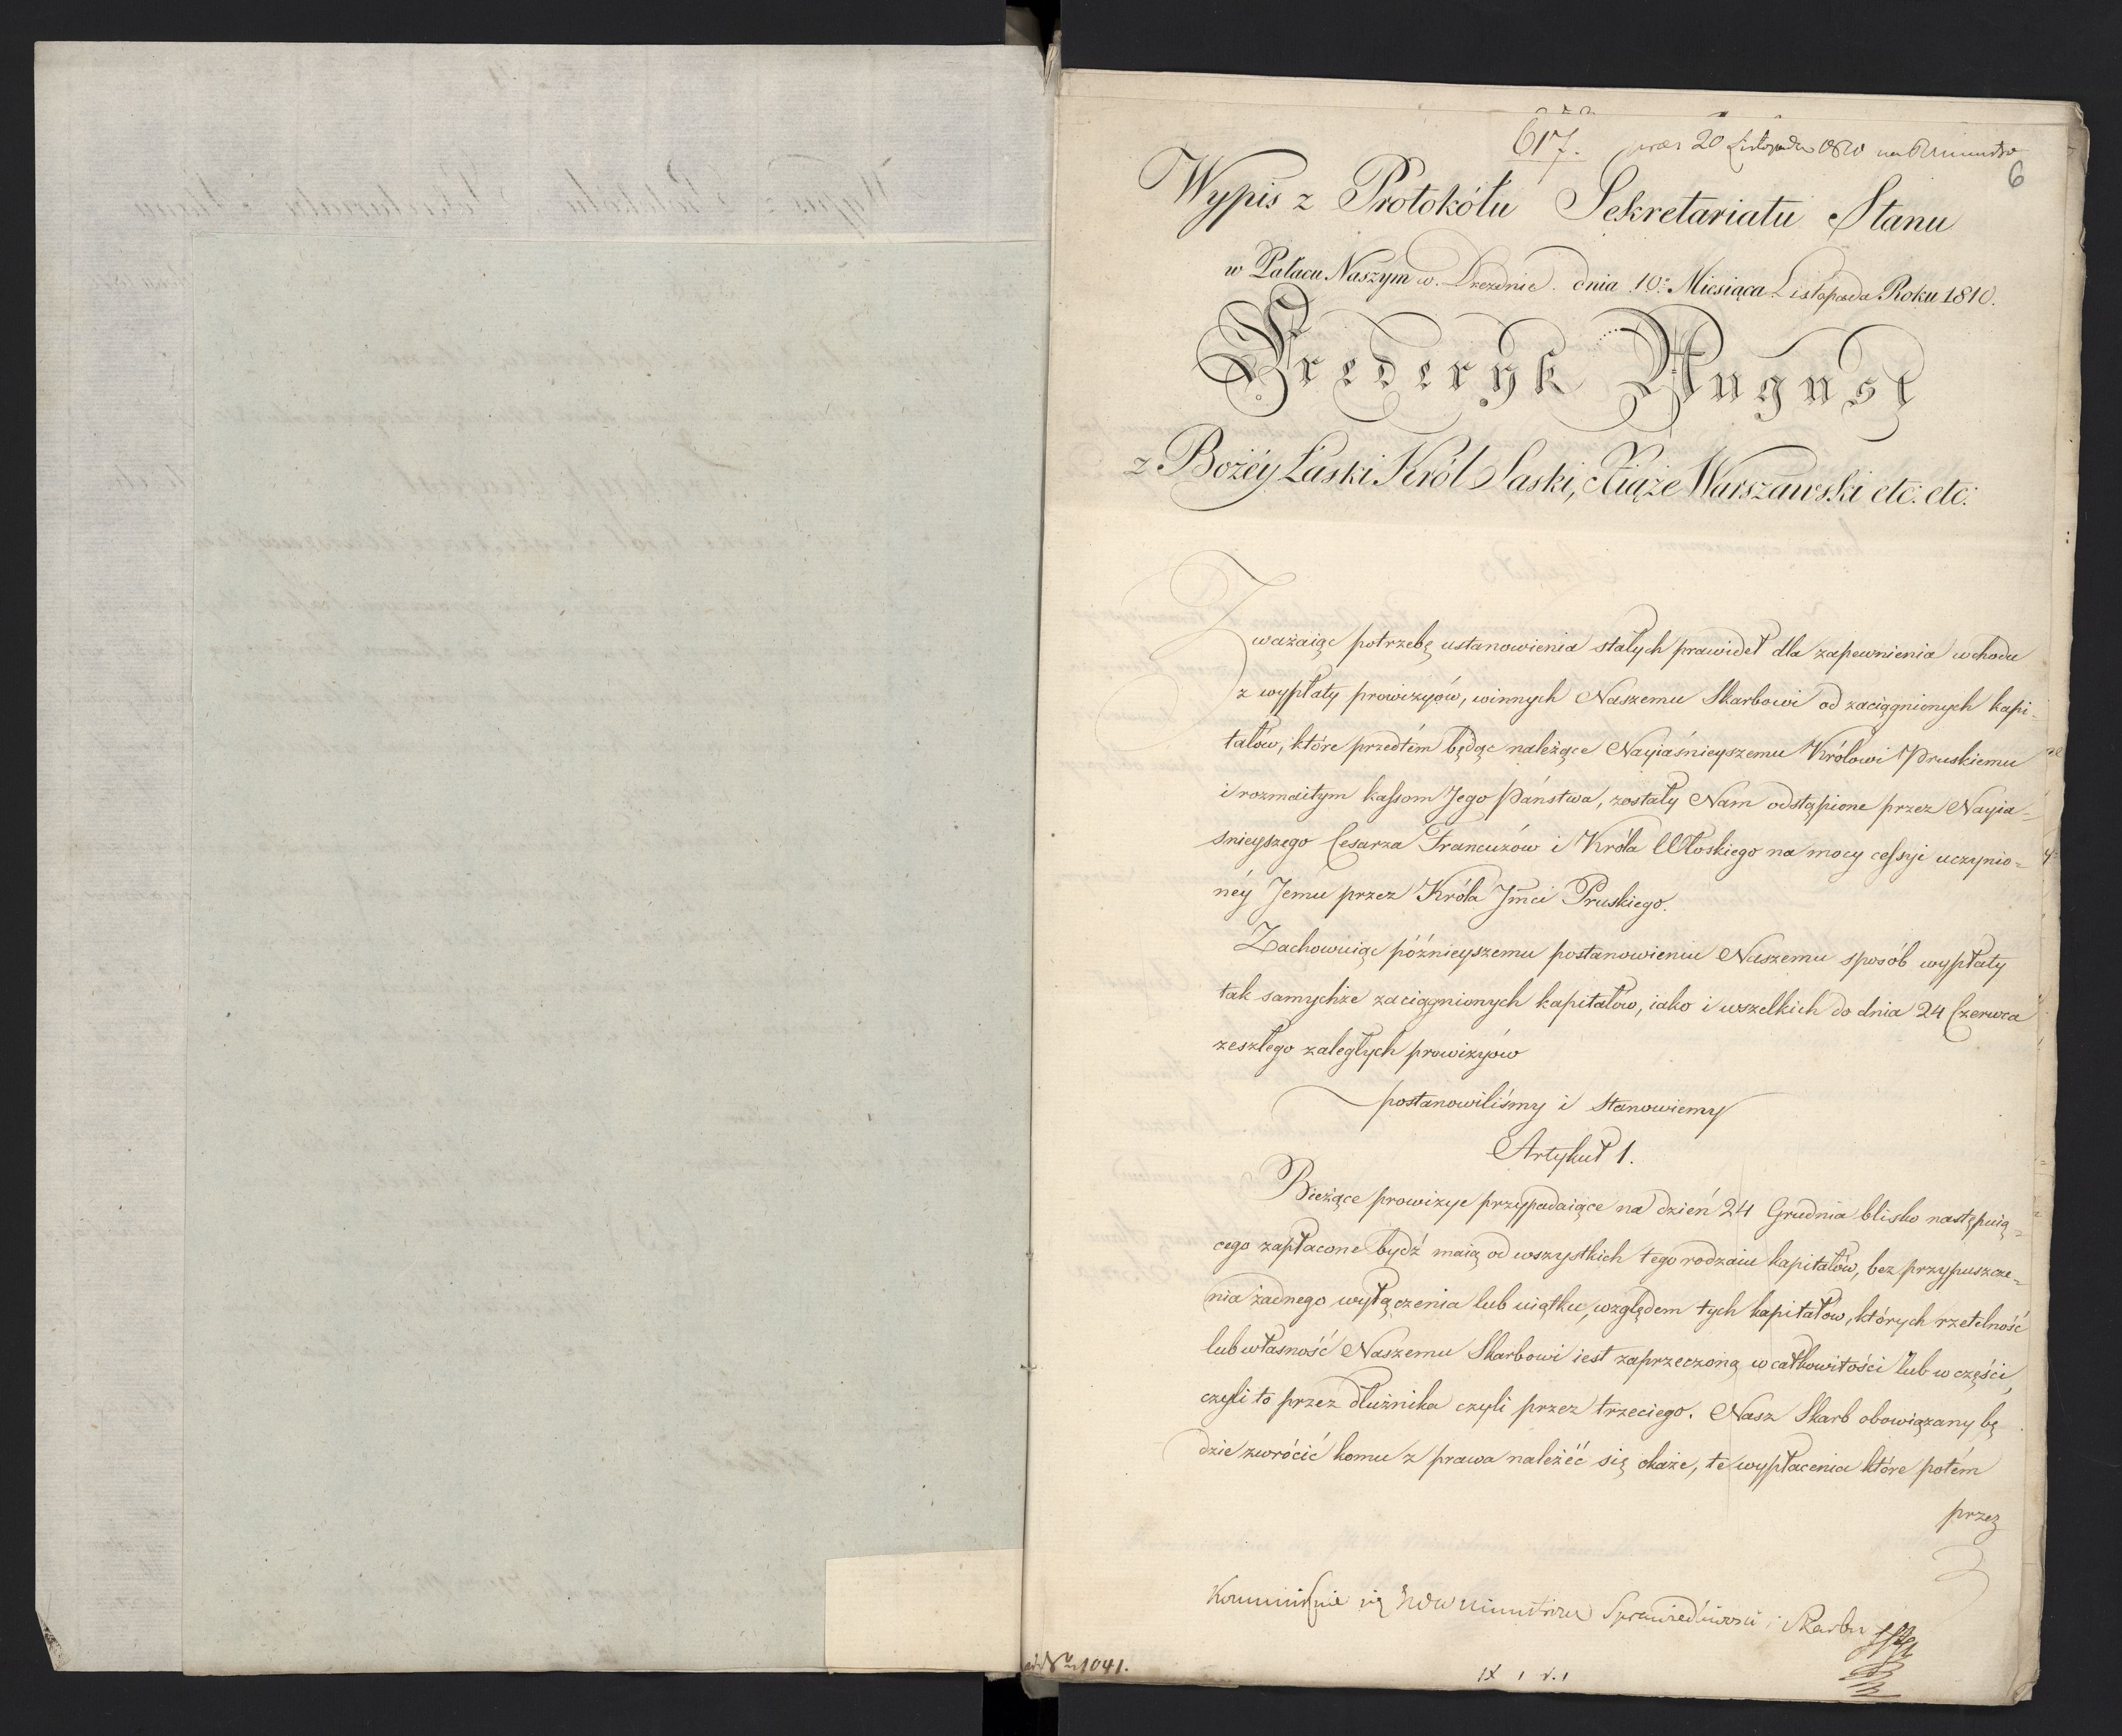 617. 20 Listopada 1810
6
Wypis z Protokółu Sekretariatu Stanu
w Pałacu Naszym w Dreznie dnia 10º Miesiąca Listopada Roku 1810.
Frederyk August
z Bożéy Łaski Król Saski, Xiąże Warszawski etc: etc:
Zważaiąc potrzebę ustanowienia stałych prawideł dla zapewnienia wchodu
z wypłaty prowizyów, winnych Naszemu Skarbowi od zaciągnionych kapi-
tałów, które przedtém będąc należące Nayiaśnieyszemu Królowi Pruskiemu
i rozmaitym kassom Jego Państwa, zostały Nam odstąpione przez Nayia-
śnieyszego Cesarza Francuzów i Króla Włoskiego na mocy cessyi uczynio-
néy Jemu przez Króla Jmci Pruskiego.
Zachowuiąc późnieyszemu postanowieniu Naszemu sposób wypłaty
tak samychże zaciągnionych kapitałów, iako i wszelkich do dnia 24 Czerwca
zeszłego zaległych prowizyów
postanowiliśmy i Stanowiemy
Artykuł 1.
Bieżące prowizye przypadaiące na dzień 24 Grudnia blisko następuią-
cego zapłacone bydź maią od wszystkich tego rodzaiu kapitałów, bez przypuszcze-
nia żadnego wyłączenia lub uiątku, względem tych kapitałów, których rzetelność
lub własność Naszemu Skarbowi iest zaprzeczoną w całkowitości lub w części,
czyli to przez dłużnika czyli przez trzeciego. Nasz Skarb obowiązany bę
dzie zwrócić komu z prawa należéć się okaże, te wypłacenia które potém
przez
Kommunikuie się Sprawiedliwości i Skarbu
ad Nrum 1041.